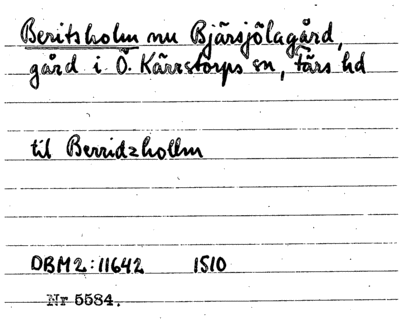 Beritsholm nu Bjärsjölagård,
gård i Ö. Kärrstorps sn, Färs hd
til Berridzhollm
DBM2:11642 1510
Nr 5584.